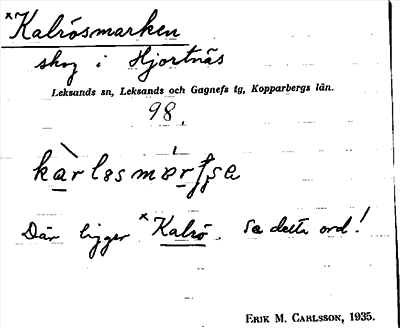 ˣKalrösmarken
skog i Hjortnäs
Leksands sn, Leksands och Gagnefs tg, Kopparbergs län.
98.
Där ligger ˣKalrö. Se detta ord!
ERIK M. CARLSSON, 1935.